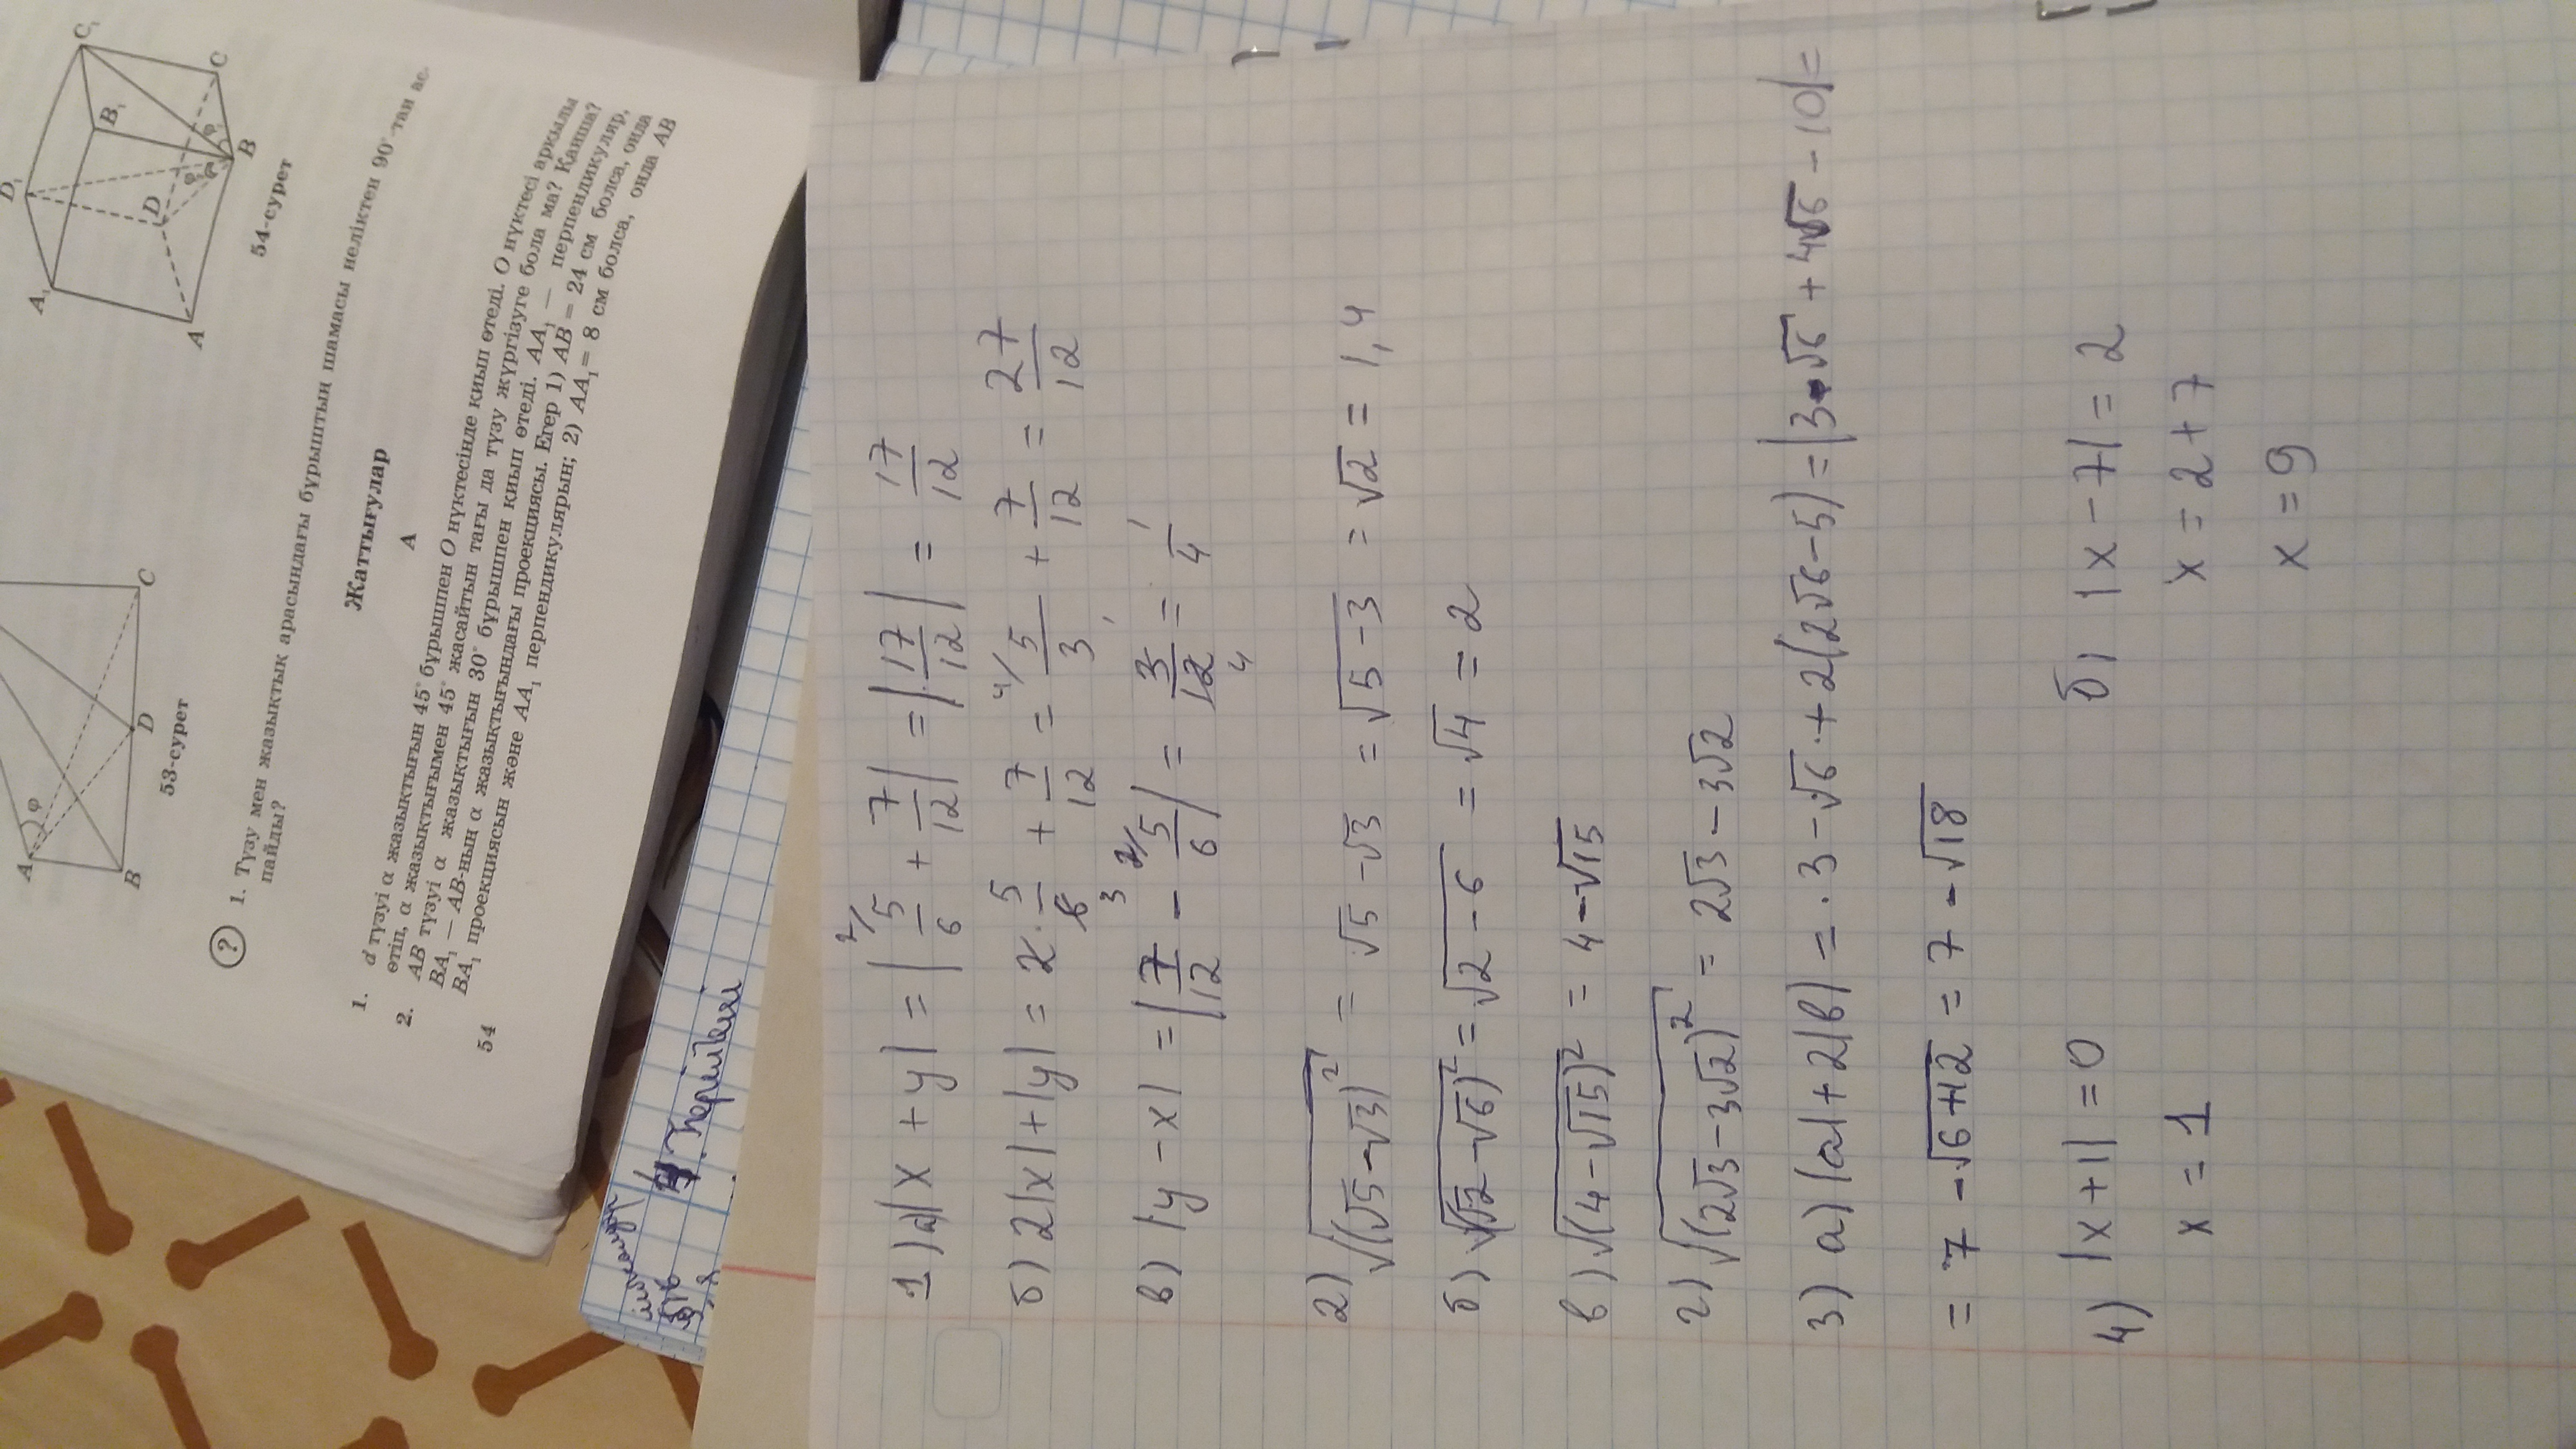 D₁ C₁
A₁ B₁
D C
A B
54-сурет
A φ C
B D
53-сурет
1. Түзу мен жазықтық арасындағы бұрыштың шамасы неліктен 90°-тан ас-
пайды?
Жаттығулар
A
1. d түзуі α жазықтығын 45° бұрышпен O нүктесінде қиып өтеді. O нүктесі арқылы
өтіп, α жазықтығымен 45° жасайтын тағы да түзу жүргізуге бола ма? Қанша?
2. AB түзуі α жазықтығын 30° бұрышпен қиып өтеді. AA₁ — перпендикуляр,
BA₁ — AB-ның α жазықтығындағы проекциясы. Егер 1) AB = 24 см болса, онда
BA₁ проекциясын және AA₁ перпендикулярын; 2) AA₁ = 8 см болса, онда AB
54
1) а) |x + y| = |2/ 5/6 + 7/12| = |17/12| = 17/12
б) 2|x| + |y| = 2 · 5/6 3 + 7/12 = 4/ 5/3 + 7/12 = 27/12
в) |y − x| = |7/12 − 2/ 5/6| = 3/12 4 = 1/4
2) √(√5 − √3)² = √5 − √3 = √5 − 3 = √2 = 1,4
б) √(√2 − √6)² = √2 − 6 = √4 = 2
в) √(4 − √15)² = 4 − √15
г) √(2√3 − 3√2)² = 2√3 − 3√2
3) а) |a| + 2|b| = 3 − √6 + 2(2√6 − 5) = |3 · √6 + 4√6 − 10| =
= 7 − √6+12 = 7 − √18
4) |x + 1| = 0 б) |x − 7| = 2
x = 1 x = 2 + 7
x = 9